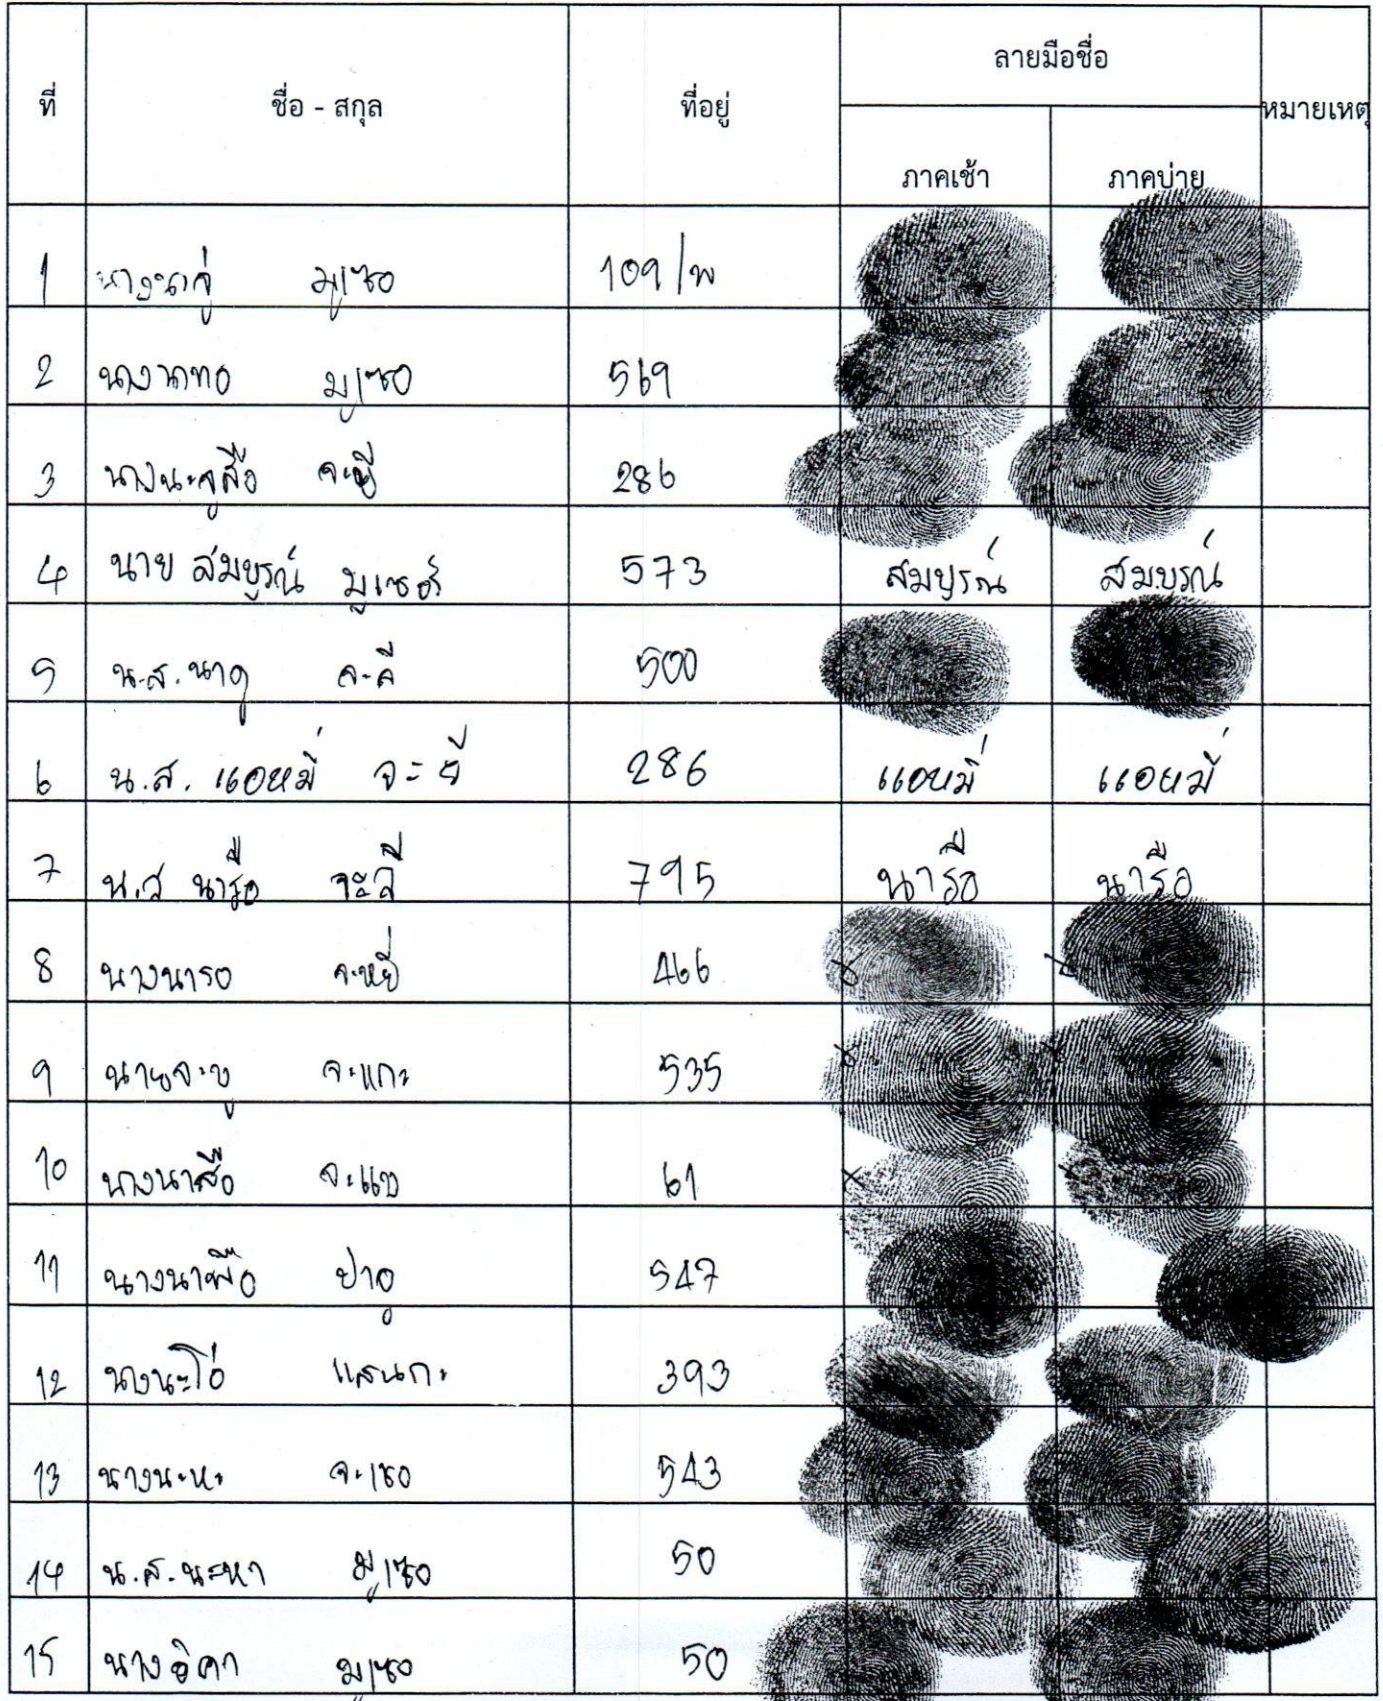 ที่ ชื่อ - สกุล ที่อยู่ ลายมือชื่อ หมายเหตุ
ภาคเช้า ภาคบ่าย
1 นางนาจู่ มูเซอ 109/พ
2 นางนาทอ มูเซอ 569
3 นางนะจูสือ จะยี 286
4 นาย สมบูรณ์ มูเซอร์ 573 สมบูรณ์ สมบูรณ์
5 น.ส. นาดู จะลี 500
6 น.ส. แอหมี่ จะยี 286 แอหมี่ แอหมี่
7 น.ส นารือ จะลี 795 นารือ นารือ
8 นางนารอ จะหยี่ 466
9 นายจะบู จะแกะ 535
10 นางนาสือ จะแข 61
11 นางนาพือ 547
12 นางนะโอ่ แสนกะ 393
13 นางนะหะ จะเซอ 543
14 น.ส. นะหา มูเซอ 50
15 นาง มูเซอ 50